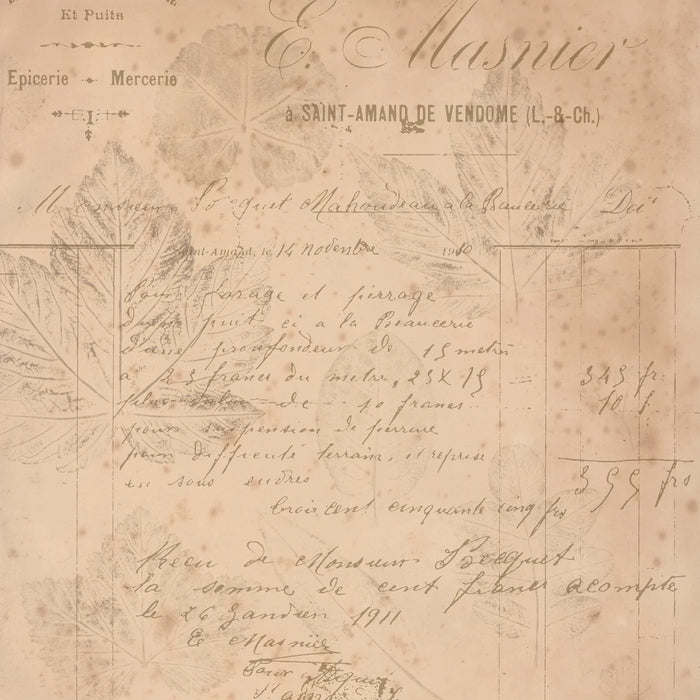 Et Puits
Epicerie Mercerie
E. Masnier
à SAINT-AMAND DE VENDOME (L.-&-Ch.)
Monsieur Bocquet Mahoudeau a la Beaucerie Doit
Saint-Amand, le 14 novenbre 1910
Pour forage et pierrage
puit ci a la Beaucerie
d'une profondeur de 15 metres
a 23 francs du metre, 23 X 15 = 345 fr
plus valux de 10 francs 10 f
pour suspension de pierrure
pour difficuté terrain, et reprise
en sous euvres
355 frs
trois cent cinquante cinq frs
Recu de Monsieur Bocquet
la somme de cent francs acompte
le 26 Janvier 1911
E Masnier
Pour